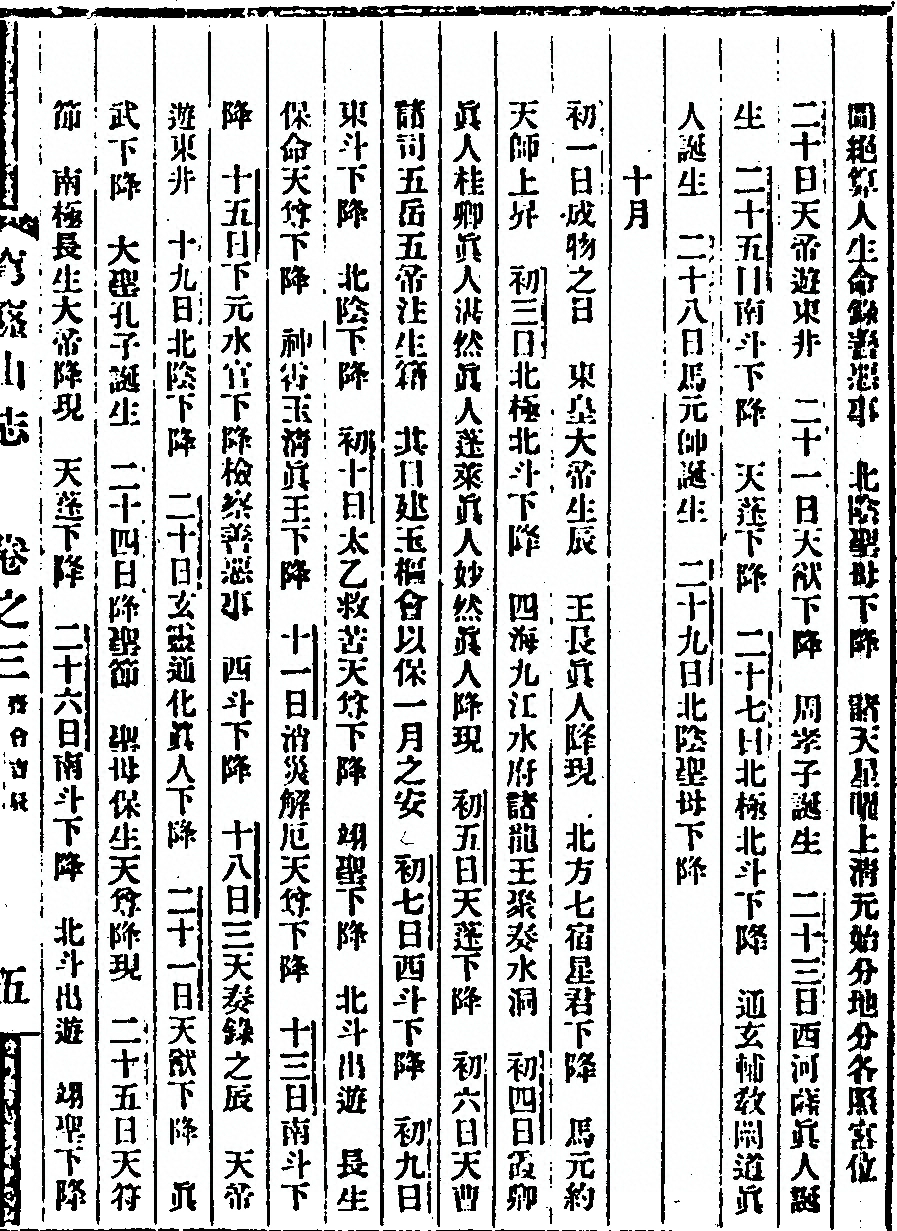 圖絕算人生命錄善惡事　北陰聖母下降　諸天星曜上淸元始分地分各照宮位
二十日天帝遊東井　二十一日天猷下降　周孝子誕生　二十三日西河薩眞人誕
生　二十五日南斗下降　天蓬下降　二十七日北極北斗下降　通玄輔敎闡道眞
人誕生　二十八日馬元帥誕生　二十九日北陰聖母下降
十月
初一日成物之日　東皇大帝生辰　王長眞人降現　北方七宿星君下降　馬元約
天師上昇　初三日北極北斗下降　四海九江水府諸龍王聚奏水洞　初四日霞卿
眞人桂卿眞人湛然眞人蓬萊眞人妙然眞人降現　初五日天蓬下降　初六日天曹
諸司五岳五帝注生籍　其日建玉樞會以保一月之安　初七日西斗下降　初九日
東斗下降　北陰下降　初十日太乙救苦天尊下降　翊聖下降　北斗出遊　長生
保命天尊下降　神霄玉淸眞王下降　十一日消災解厄天尊下降　十三日南斗下
降　十五日下元水官下降檢察善惡事　西斗下降　十八日三天奏錄之辰　天帝
遊東井　十九日北陰下降　二十日玄靈通化眞人下降　二十一日天猷下降　眞
武下降　大聖孔子誕生　二十四日降聖節　聖母保生天尊降現　二十五日天符
節　南極長生大帝降現　天蓬下降　二十六日南斗下降　北斗出遊　翊聖下降
穹窿山志　卷之三　五